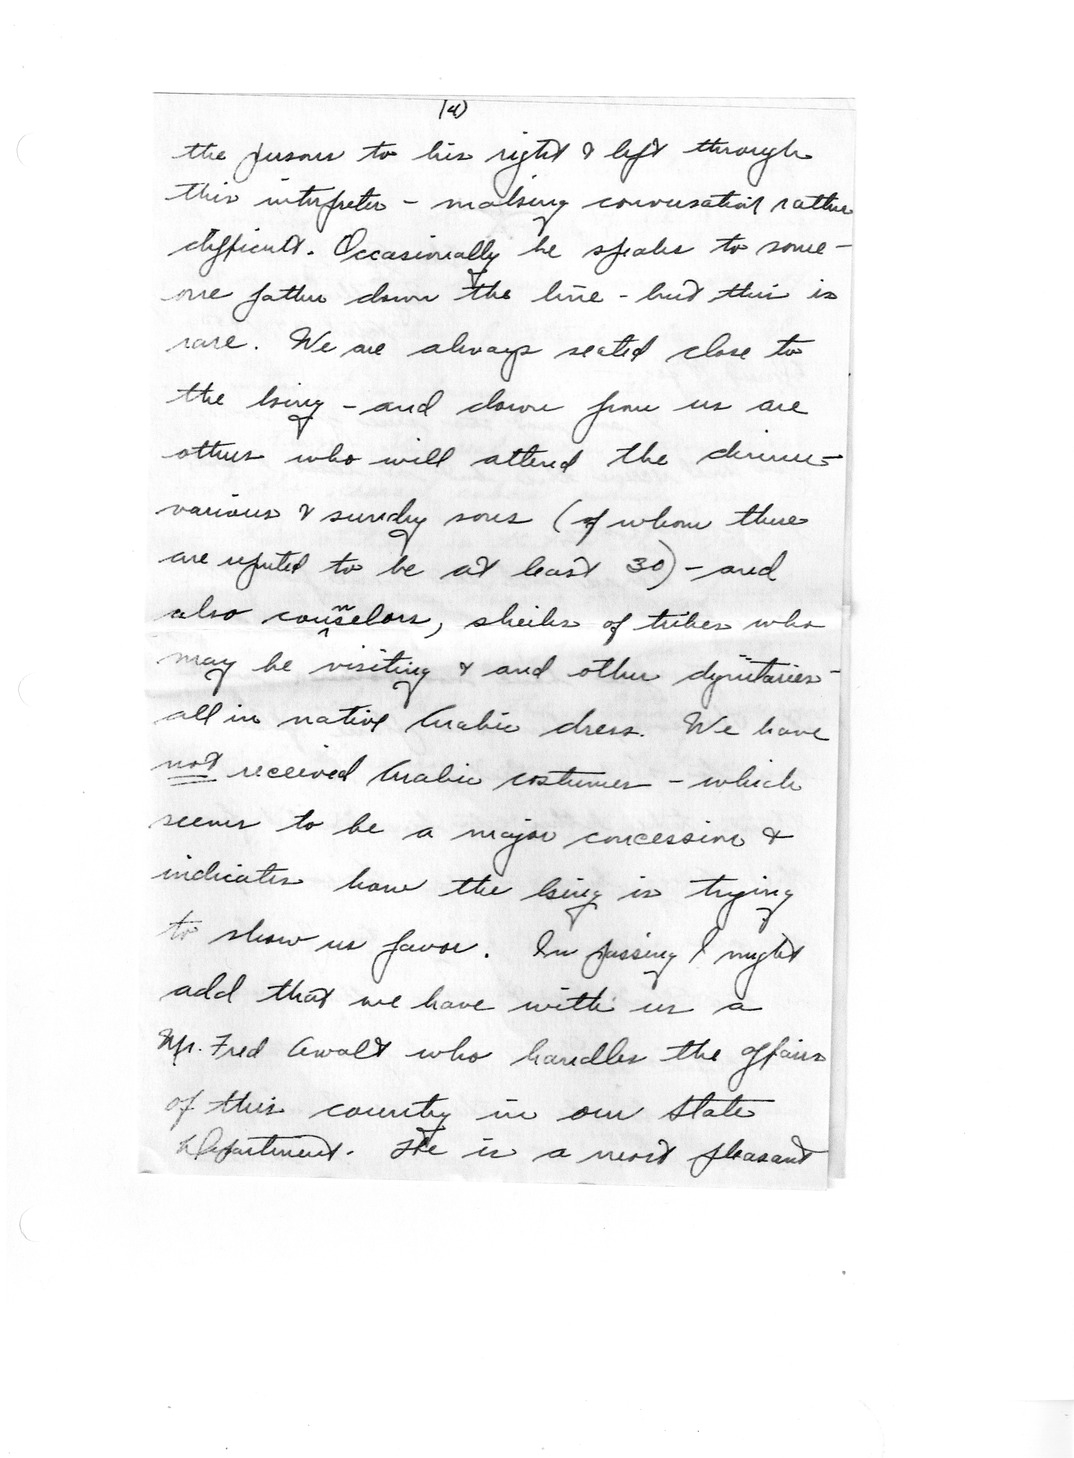 (4)
the persons to his right & left through
this interpreter - making conversation rather
difficult. Occasionally he speaks to some-
one father down the line - but this is
rare. We are always seated close to
the king - and down from us are
others who will attend the dinner -
various & sundry sons (of whom there
are reputed to be at least 30) - and
also counselors, sheiks of tribes who
may be visiting & and other dignitaries -
all in native Arabic dress. We have
not received Arabic costumes - which
seems to be a major concession &
indicates how the king is trying
to show us favor. In passing I might
add that we have with us a
Mr. Fred Awalt who handles the affairs
of this country in our State
Department. He is a most pleasant